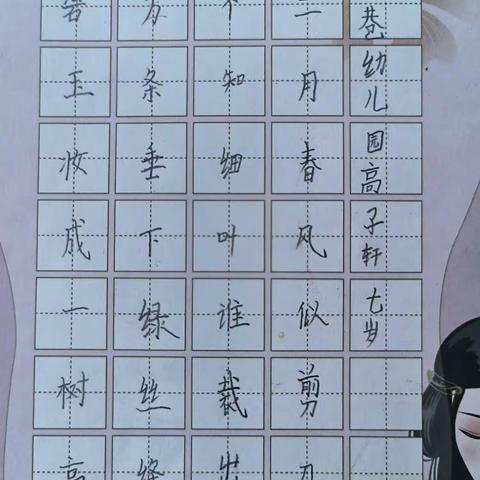 碧玉妆成一树高
万条垂下绿丝绦
不知细叶谁裁出
二月春风似剪刀
巷幼儿园高子轩七岁